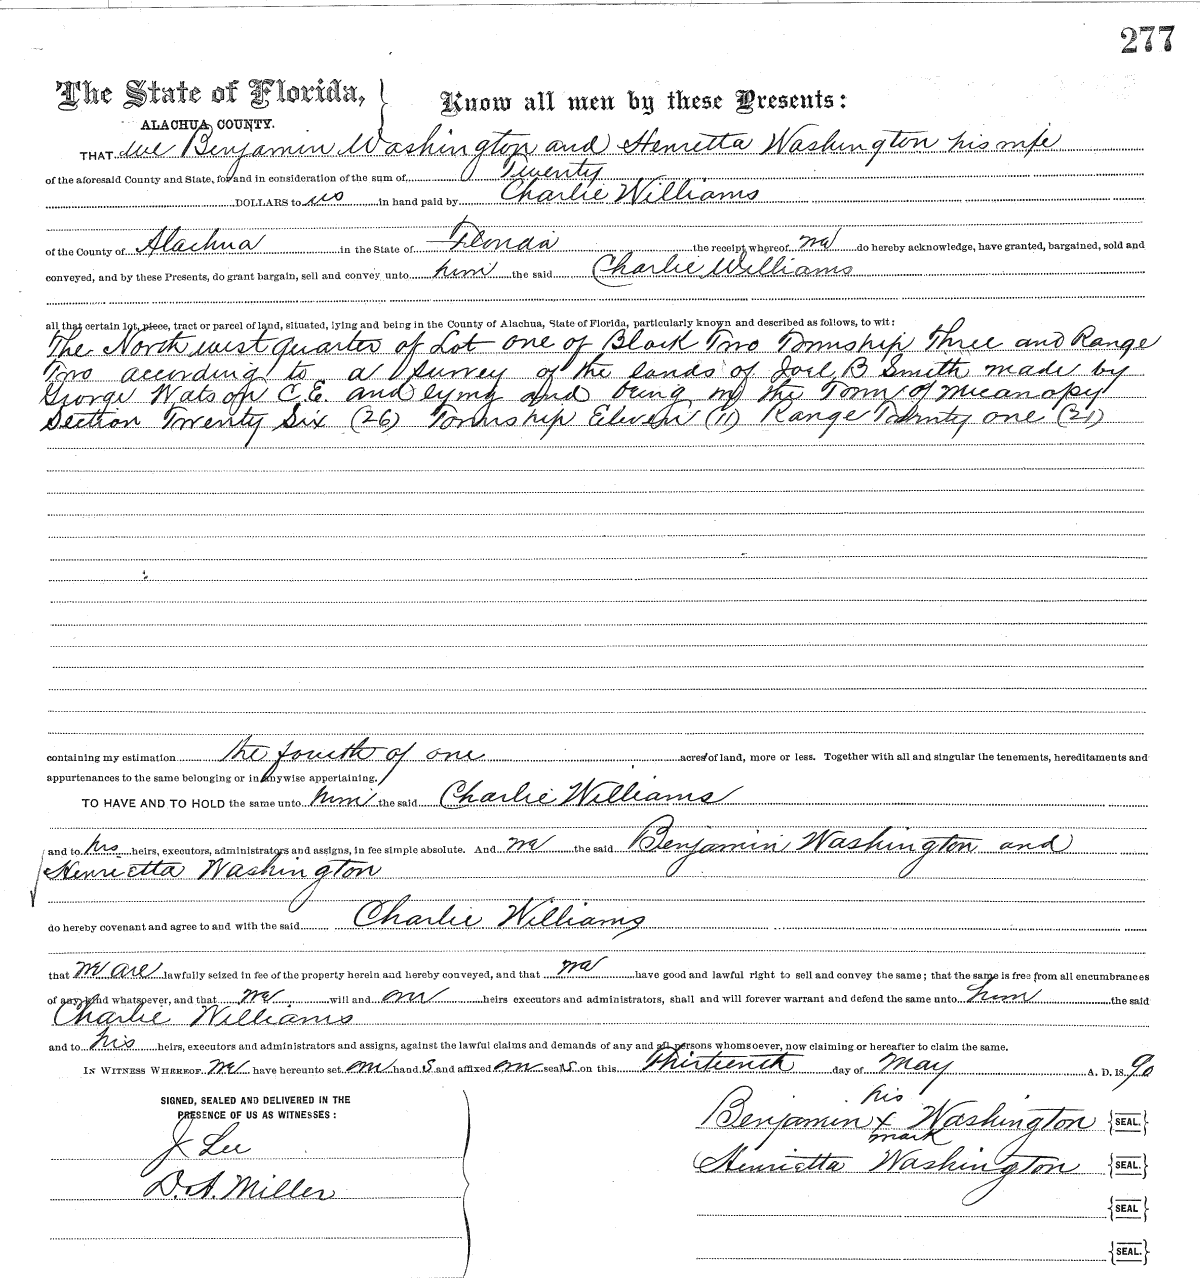 277
The State of Florida,
ALACHUA COUNTY.
Know all men by these Presents:
THAT we Benjamin Washington and Henrietta Washington his wife
of the aforesaid County and State, for and in consideration of the sum of Twenty
DOLLARS to us in hand paid by Charlie Williams
of the County of Alachua in the State of Florida the receipt whereof we do hereby acknowledge, have granted, bargained, sold and
conveyed, and by these Presents, do grant bargain, sell and convey unto him the said Charlie Williams
all that certain lot, piece, tract or parcel of land, situated, lying and being in the County of Alachua, State of Florida, particularly known and described as follows, to wit:
The North west quarter of Lot one of Block Two Township Three and Range
Two according to a Survey of the lands of Joel B Smith made by
George Watson C.E. and lying and being in the Town of Micanopy
Section Twenty Six (26) Township Eleven (11) Range Twenty one (21)
containing my estimation the fourth of one acres of land, more or less. Together with all and singular the tenements, hereditaments and
appurtenances to the same belonging or in anywise appertaining.
TO HAVE AND TO HOLD the same unto him the said Charlie Williams
and to his heirs, executors, administrators and assigns, in fee simple absolute. And we the said Benjamin Washington and
Henrietta Washington
do hereby covenant and agree to and with the said Charlie Williams
that we are lawfully seized in fee of the property herein and hereby conveyed, and that we have good and lawful right to sell and convey the same; that the same is free from all encumbrances
of any kind whatsoever, and that we will and our heirs executors and administrators, shall and will forever warrant and defend the same unto him the said
Charlie Williams
and to his heirs, executors and administrators and assigns, against the lawful claims and demands of any and all persons whomsoever, now claiming or hereafter to claim the same.
IN WITNESS WHEREOF we have hereunto set our hands and affixed our seals on this Thirteenth day of May A. D. 1890
SIGNED, SEALED AND DELIVERED IN THE
PRESENCE OF US AS WITNESSES:
J Lee
D. A. Miller
his
Benjamin x Washington {SEAL.}
mark
Henrietta Washington {SEAL.}
{SEAL}
{SEAL.}